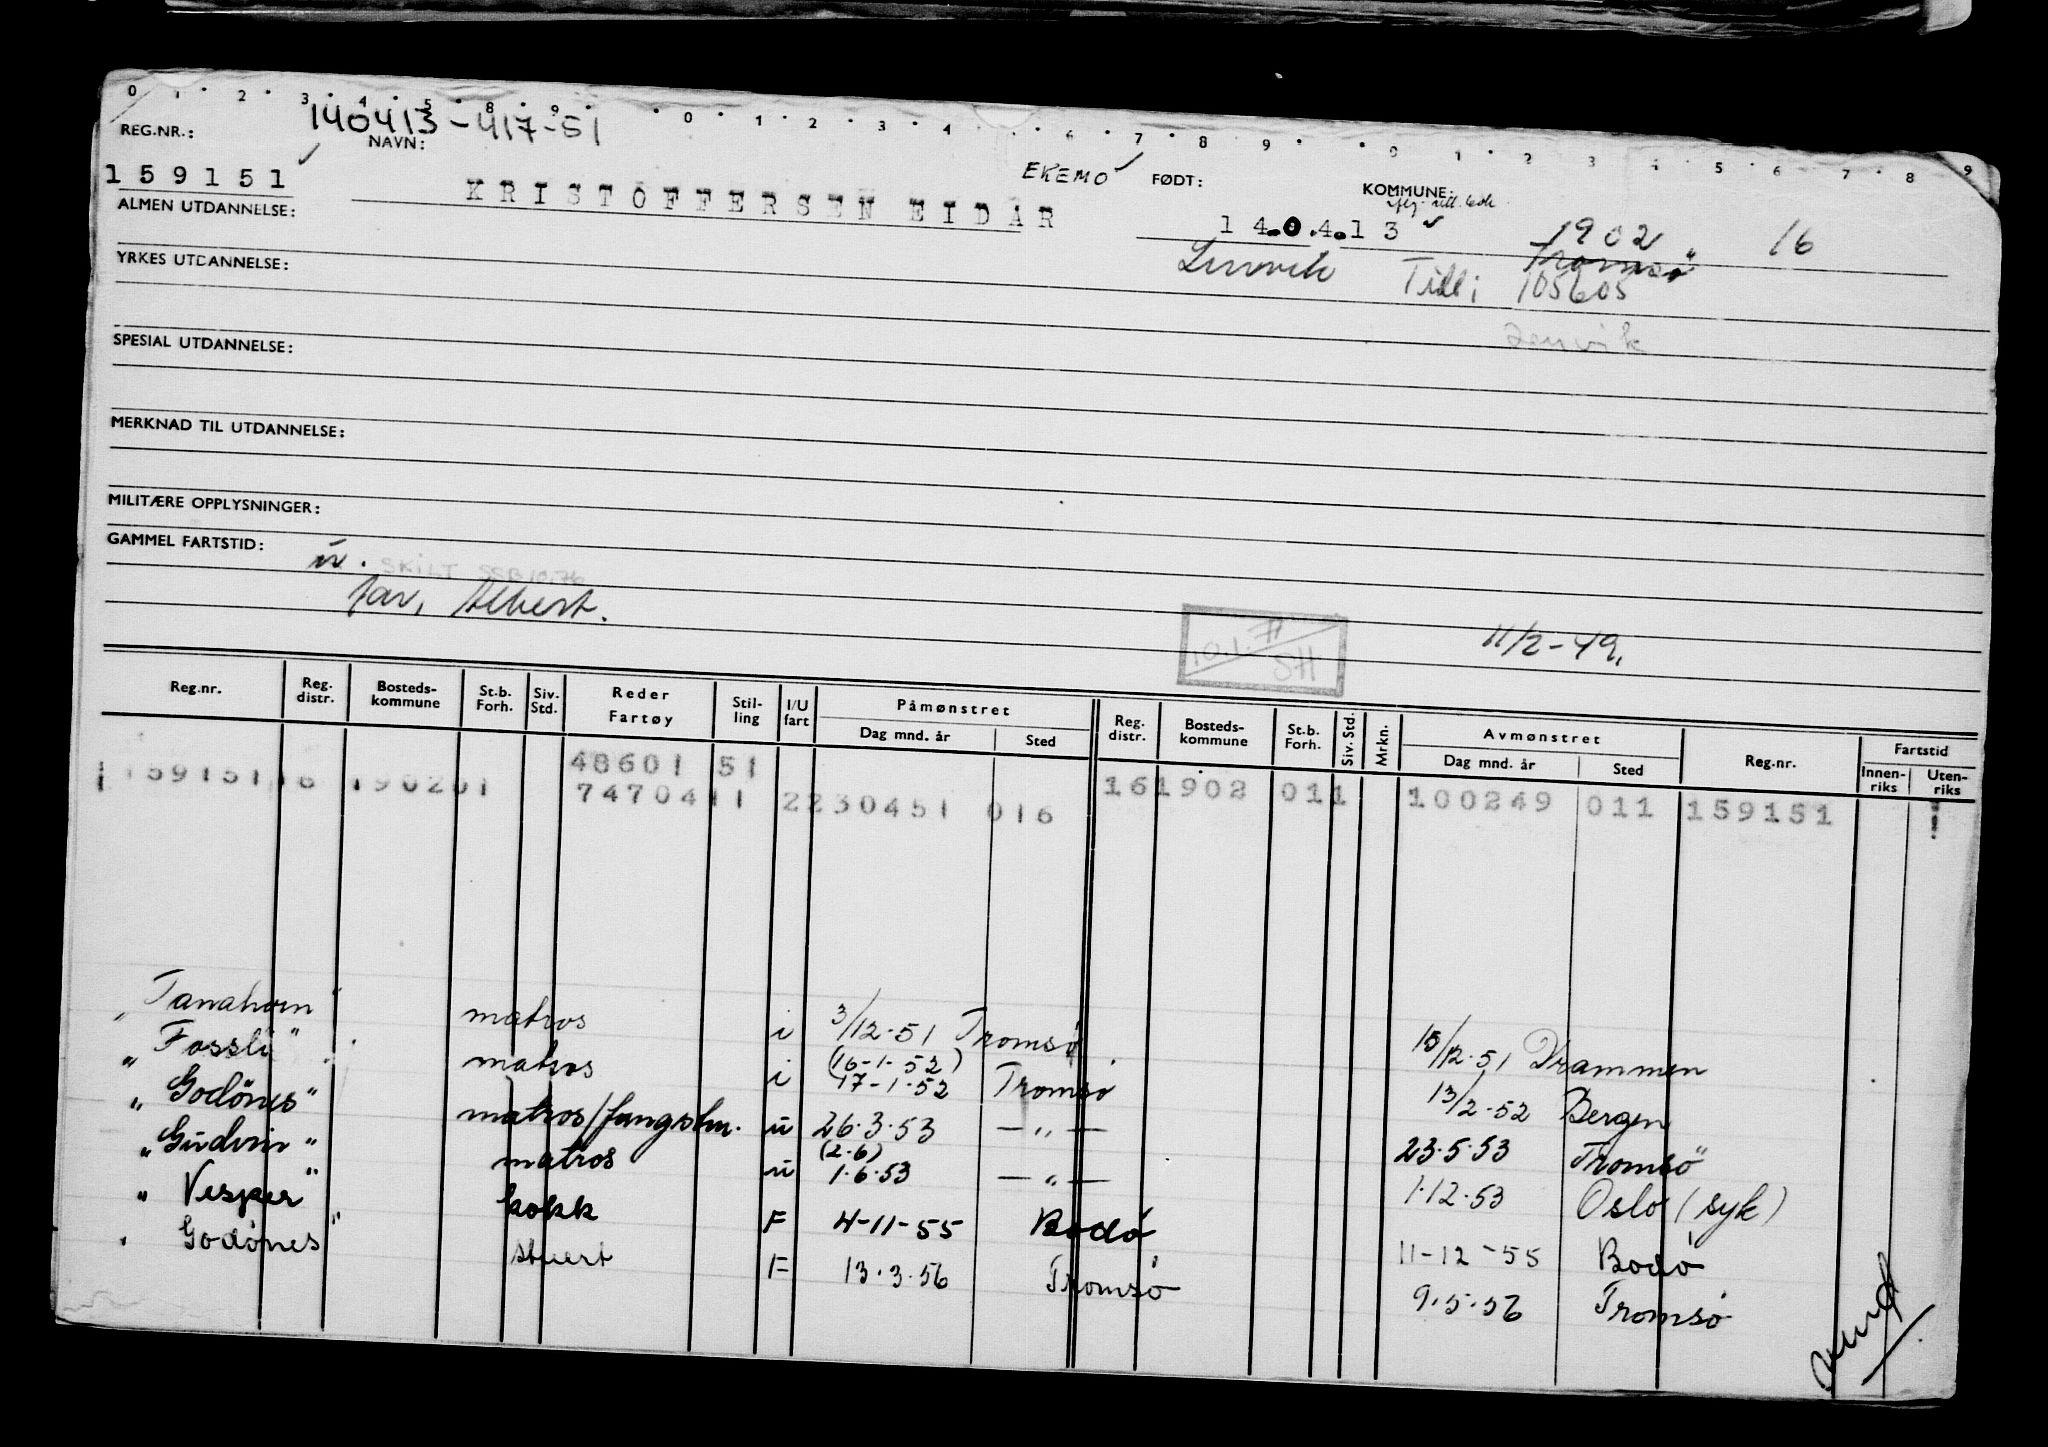 0 1 2 3 4 5 8 9 0 1 2 3 4 6 7 8 9 0 1 2 3 4 5 6 7 8 9
140413-417-51
REG.NR.: NAVN: EKEMO FØDT: KOMMUNE:
159151 KRISTOFFERSEN EIDAR 14.04.13 1902 16
Tromsø
ALMEN UTDANNELSE: Lenvik Till; 105605
YRKES UTDANNELSE:
Lenvik
SPESIAL UTDANNELSE:
MERKNAD TIL UTDANNELSE:
MILITÆRE OPPLYSNINGER:
GAMMEL FARTSTID:
SKILT SSB 10.76
far, Albert.
11/2-49.
SH
Reg.nr. Reg. distr. Bosteds-kommune St.b. Forh. Siv. Std. Reder Fartøy Stil-ling I/U fart Påmønstret Dag mnd. år Sted Reg. distr. Bosteds-kommune St.b. Forh. Siv. Std. Mrkn. Avmønstret Dag mnd. år Sted Reg.nr. Fartstid Innen-riks Uten-riks
48601 51
159151 16 190201 7470411 2230451 016 161902 011 100249 011 159151
"Tanahorn" matros i 3/12-51 Tromsø 15/12-51 Drammen
"Fossli" matros i (16-1-52) 17-1-52 Tromsø 13/2-52 Bergen
"Godönes" matros/fangstm. ü 26.3.53 — " — 23.5.53 Tromsö
"Gudvin" matros ü (2.6) 1.6.53 — " — 1.12.53 Oslo (syk)
"Vesper" kokk F 4-11-55 Bodø 11-12-55 Bodø
"Godønes" stuert F 13.3.56 Tromsø 9.5.56 Tromsø